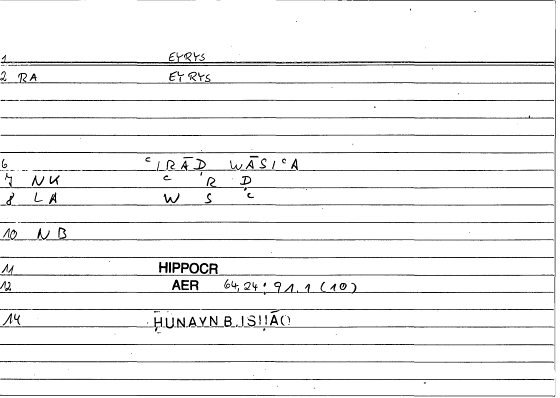 1 EYRYS
2 RA EYRYS
6 ʿIRĀḌ WĀSIʿA
7 NK ʿ R Ḍ
8 LA W S ʿ
10 NB
11 HIPPOCR
12 AER 64,24: 91.1 (10)
14 ḤUNAYN B.